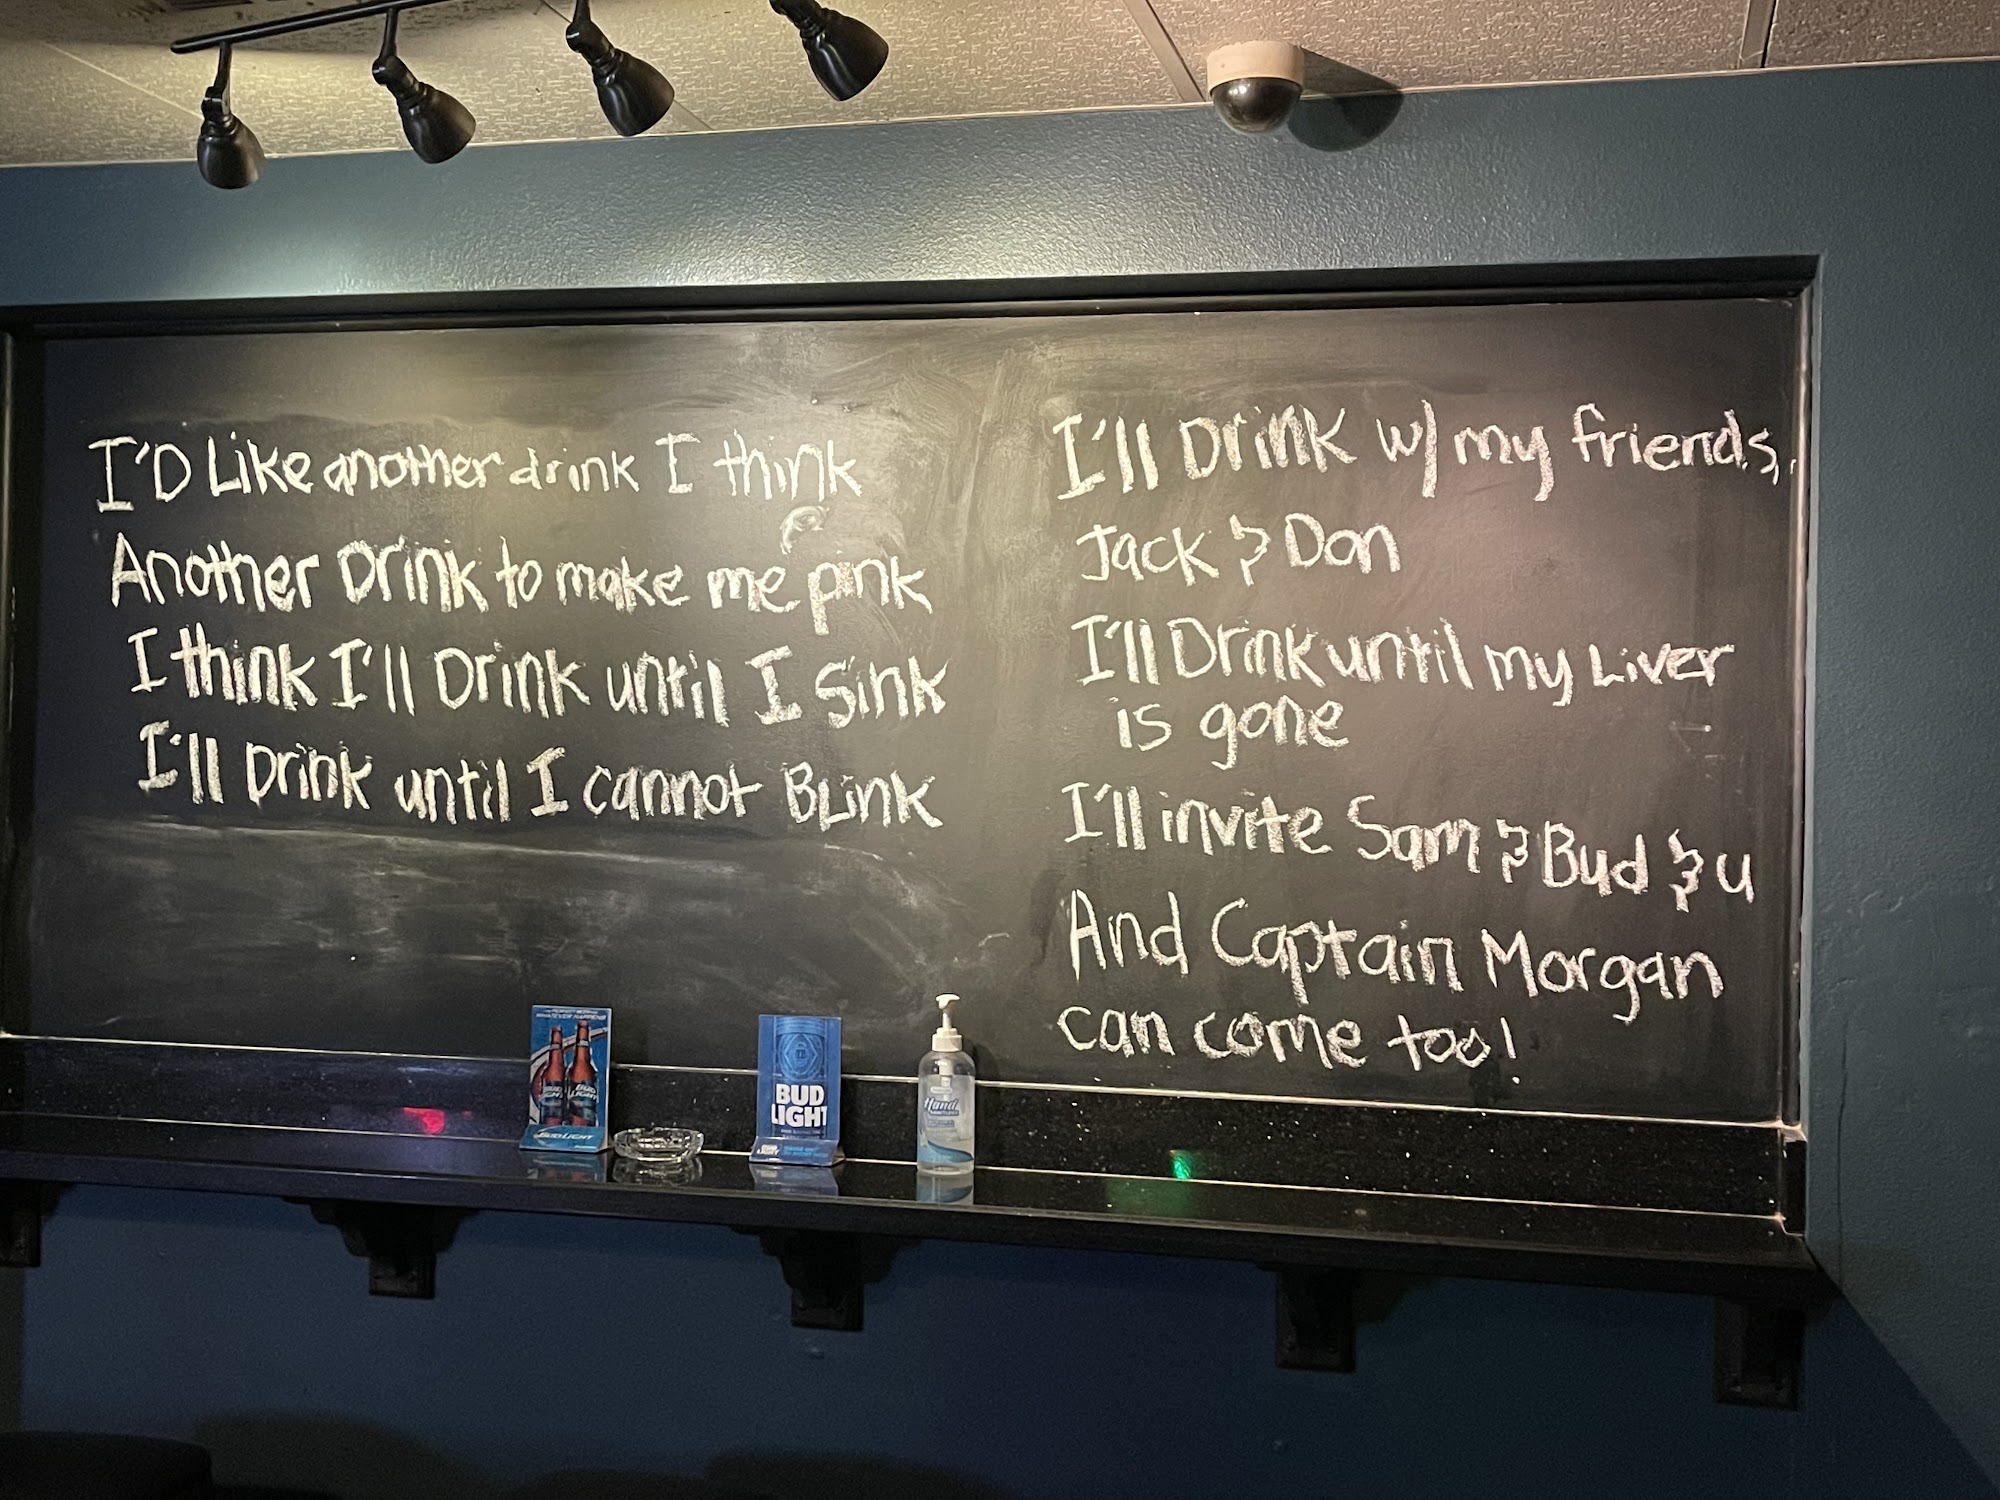 I'D Like another drink I think
Another Drink to make me pink
I think I'll Drink until I Sink
I'll Drink until I cannot BLink
I'll Drink w/ my friends,
Jack & Don
I'll Drink until my Liver
is gone
I'll invite Sam & Bud & u
And Captain Morgan
can come too!
WHATEVER HAPPENS
BUD LIGHT
BUD LIGHT
BUD LIGHT
BUD
LIGHT
Hand